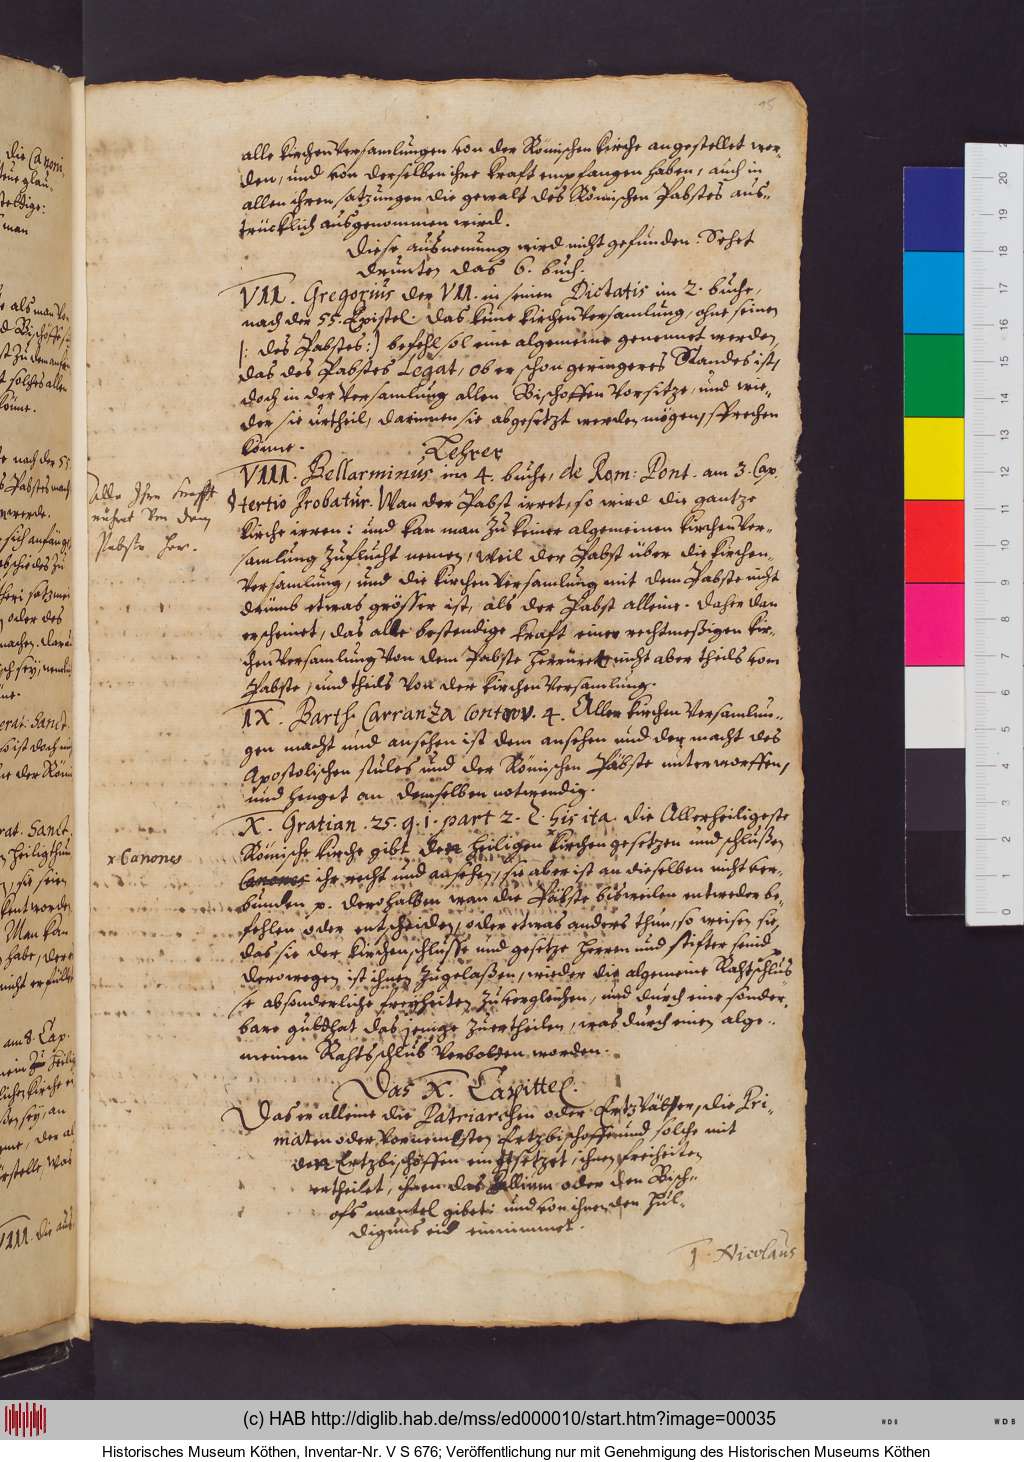 15
alle kirchen Versamlungen von der Römischen kirche angestellet wer-
den, und von derselben ihre kraft empfangen haben, auch in
allen ihren satzungen die gewalt des Römischen Pabstes aus-
trücklich ausgenommen wird.
Diese ausnemung wird nicht gefunden. Sehet
drunten das 6. buch.
VII. Gregorius der VII. in seinen Dictatis im 2. buche,
nach der 55. Epistel. Das keine kirchen Versamlung, ohne seinen
/: des Pabstes :/ befehl, sol eine algemeine genennet werden,
das des Pabstes Legat, ob er schon geringeres Standes ist,
doch in der Versamlung allen Bischoffen Vorsitze, und wie-
der sie urtheil, darinnen sie abgesetzt werden mögen, sprechen
könne.
Lehrer
VIII. Bellarminus im 4. buche, de Rom: Pont. am 3. Cap.
tertio Probatur. Wan der Pabst irret, so wird die gantze
kirche irren: und kan man zu keiner algemeinen kirchen Ver-
samlung zuflucht nemen, weil der Pabst über die kirchen-
Versamlung, und die kirchen Versamlung mit dem Pabste nicht
drümb etwas grösser ist, als der Pabst alleine. Daher dan
erscheinet, das alle bestendige kraft einer rechtmeßigen kir-
chen Versamlung Von dem Pabste herrüret, nicht aber theils vom
Pabste, und theils Von der kirchen Versamlung.
alle Ihre krafft
rühret Von dem
Pabste her.
IX. Barth. Carranza Controv. 4. Aller kirchen Versamlun-
gen macht und ansehen ist dem ansehen und der macht des
Apostolischen stules und der Römischen Päbste unterworffen,
und henget an demselben notwendig.
X. Gratian. 25. q. 1. part 2. C. his ita. Die Allerheiligeste
Römische kirche gibt den heiligen kirchen gesetzen und schlüßen
Canones ihr recht und ansehen, sie aber ist an dieselben nicht ver-
bunden p. Derohalben wan die Päbste bisweilen entweder be-
fehlen oder entscheiden, oder etwas anders thun, so weisen sie,
das sie der kirchenschlüsse und gesetze herren und stifter seind
Derowegen ist ihnen zugelaßen, wieder die algemeine Rahtschlüs-
se absonderliche freyheiten zu vergleichen, und durch eine sonder-
bare gutthat das jenige zuertheilen, was durch einen alge-
meinen Rahtsschlus verbotten worden.
x Canones
Das X. Capittel.
Das er alleine die Patriarchen oder Ertzväter, die Pri-
maten oder Vornemsten Ertzbischoffe und solche mit
den Ertzbischöffen einsetzet, ihnen freiheiten
ertheilet, ihnen das Pallium oder den Bisch-
ofs mantel gibet: und von ihnen den hul-
digungs eid einnimmet.
I. Nicolaus
(c) HAB http://diglib.hab.de/mss/ed000010/start.htm?image=00035
Historisches Museum Köthen, Inventar-Nr. V S 676; Veröffentlichung nur mit Genehmigung des Historischen Museums Köthen